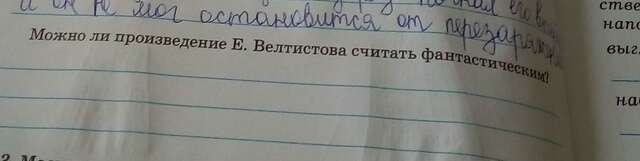 и он не мог остановится от перезаряд
Можно ли произведение Е. Велтистова считать фантастическим?
стве
напо
выг
на